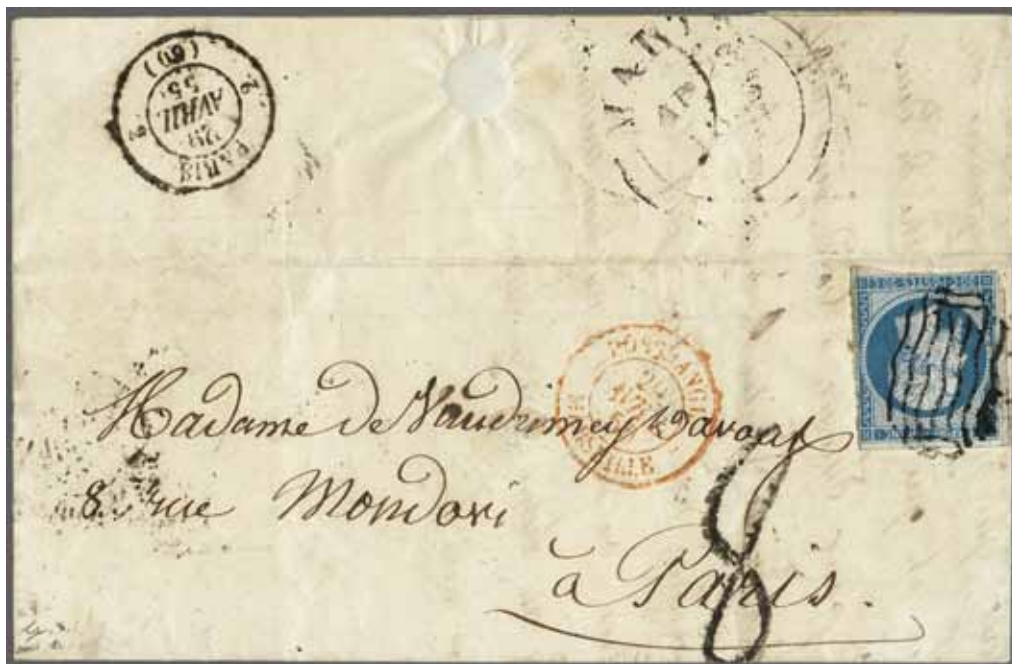 PARIS
29
AVRIL
55
(60)
2 2
AP
Madame de Vaudrimey Davout
8. rue Mondovi
à Paris.
8